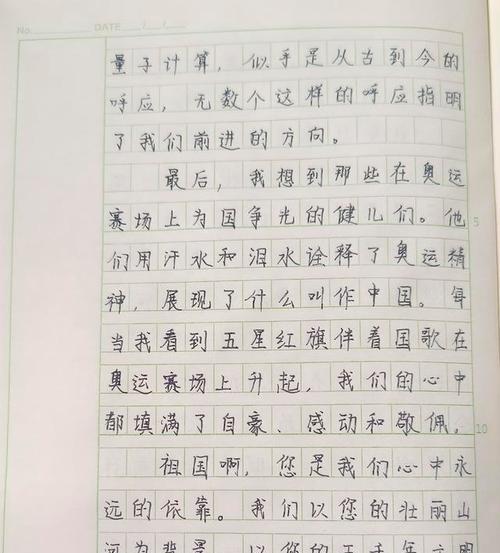 No.
DATE / /
量子计算，似乎是从古到今的
呼应，无数个这样的呼应指明
了我们前进的方向。
最后，我想到那些在奥运
赛场上为国争光的健儿们。他
5
们用汗水和泪水诠释了奥运精
神，展现了什么叫作中国。每
当我看到五星红旗伴着国歌在
奥运赛场上升起，我们的心中
都填满了自豪、感动和敬佩。
10
祖国啊，您是我们心中永
远的依靠。我们以您的壮丽山
河为背景，以您的五千年文明